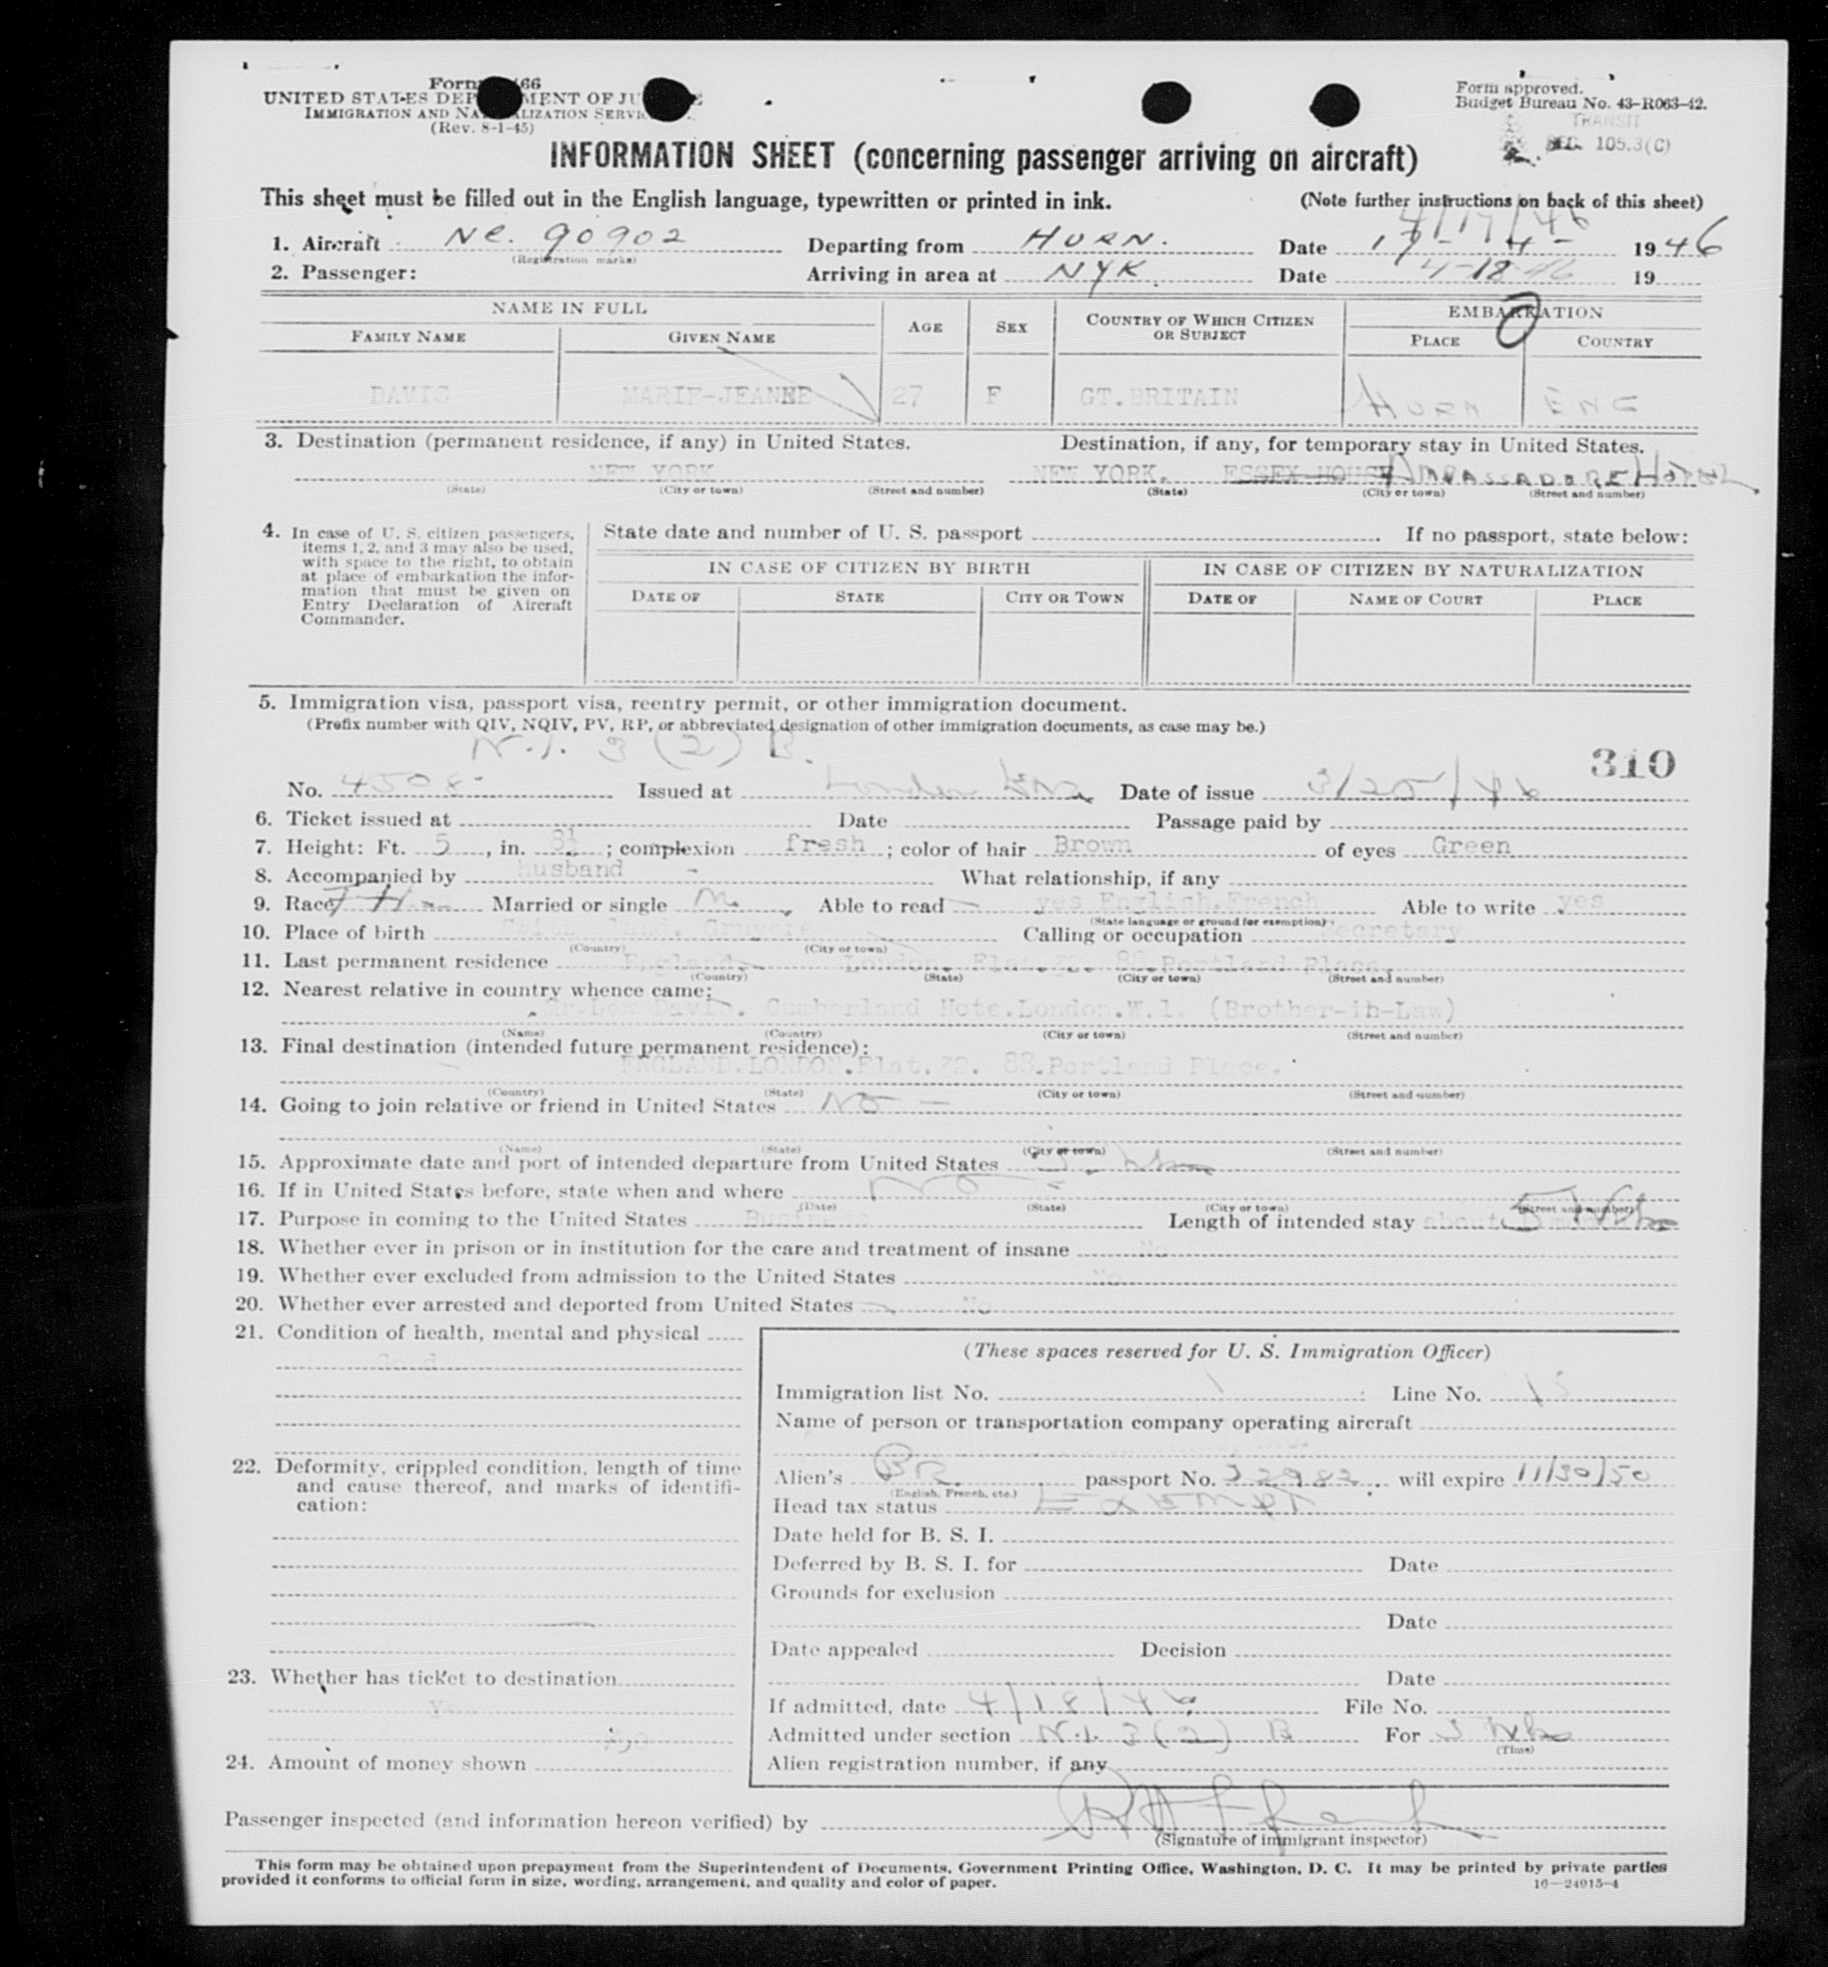 Form 466
UNITED STATES DEPARTMENT OF JUSTICE
IMMIGRATION AND NATURALIZATION SERVICE
(Rev. 8-1-45)
Form approved.
Budget Bureau No. 43-R063-42.
TRANSIT
SEC. 105.3(C)
INFORMATION SHEET (concerning passenger arriving on aircraft)
This sheet must be filled out in the English language, typewritten or printed in ink. (Note further instructions on back of this sheet)
4/17/46
1. Aircraft NC. 90902 Departing from HURN. Date 17-4- 1946
(Registration marks)
2. Passenger: Arriving in area at NYK. Date 4-18-46 19
NAME IN FULL AGE SEX COUNTRY OF WHICH CITIZEN OR SUBJECT EMBARKATION
FAMILY NAME GIVEN NAME PLACE COUNTRY
DAVIS MARIE-JEANNE 27 F GT.BRITAIN HURN ENG
3. Destination (permanent residence, if any) in United States. Destination, if any, for temporary stay in United States.
NEW YORK NEW YORK. ESSEX HOUSE AMBASSADORE HOTEL
(State) (City or town) (Street and number) (State) (City or town) (Street and number)
4. In case of U. S. citizen passengers, items 1, 2, and 3 may also be used, with space to the right, to obtain at place of embarkation the information that must be given on Entry Declaration of Aircraft Commander.
State date and number of U. S. passport If no passport, state below:
IN CASE OF CITIZEN BY BIRTH IN CASE OF CITIZEN BY NATURALIZATION
DATE OF STATE CITY OR TOWN DATE OF NAME OF COURT PLACE
5. Immigration visa, passport visa, reentry permit, or other immigration document.
(Prefix number with QIV, NQIV, PV, RP, or abbreviated designation of other immigration documents, as case may be.)
N.I. 3 (2) B.
310
No. 4508 Issued at London Eng Date of issue 3/25/46
6. Ticket issued at Date Passage paid by
7. Height: Ft. 5, in. 8½; complexion fresh; color of hair Brown of eyes Green
8. Accompanied by husband What relationship, if any
9. Race Married or single M. Able to read yes English.French Able to write yes
(State language or ground for exemption)
10. Place of birth Gruyere Calling or occupation Secretary
(Country) (City or town)
11. Last permanent residence England. London. Flat.32. 88.Portland Place.
(Country) (State) (City or town) (Street and number)
12. Nearest relative in country whence came:
Davis. Cumberland Hote.London.W.1. (Brother-in-Law)
(Name) (Country) (City or town) (Street and number)
13. Final destination (intended future permanent residence):
ENGLAND.LONDON.Flat.32. 88.Portland Place.
(Country) (State) (City or town) (Street and number)
14. Going to join relative or friend in United States NO -
(Name) (State) (City or town) (Street and number)
15. Approximate date and port of intended departure from United States
16. If in United States before, state when and where NO -
(Date) (State) (City or town) (Street and number)
17. Purpose in coming to the United States Business Length of intended stay about 5 Wks
18. Whether ever in prison or in institution for the care and treatment of insane No
19. Whether ever excluded from admission to the United States No
20. Whether ever arrested and deported from United States No
21. Condition of health, mental and physical
Good
22. Deformity, crippled condition, length of time and cause thereof, and marks of identification:
23. Whether has ticket to destination
Yes
24. Amount of money shown
(These spaces reserved for U. S. Immigration Officer)
Immigration list No. 1 Line No. 13
Name of person or transportation company operating aircraft
Alien's BR. passport No. 32982 will expire 11/30/50
(English, French, etc.)
Head tax status EXEMPT
Date held for B. S. I.
Deferred by B. S. I. for Date
Grounds for exclusion
Date
Date appealed Decision
Date
If admitted, date 4/18/46 File No.
Admitted under section N.I. 3 (2) B For 5 Wks
(Time)
Alien registration number, if any
Passenger inspected (and information hereon verified) by
(Signature of immigrant inspector)
This form may be obtained upon prepayment from the Superintendent of Documents, Government Printing Office, Washington, D. C. It may be printed by private parties
provided it conforms to official form in size, wording, arrangement, and quality and color of paper.
16—24915-4